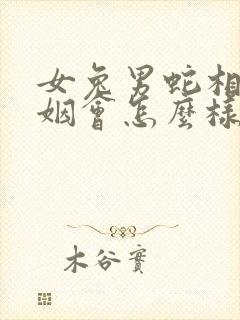 女兔男蛇相
姻會怎麼樣
木谷實